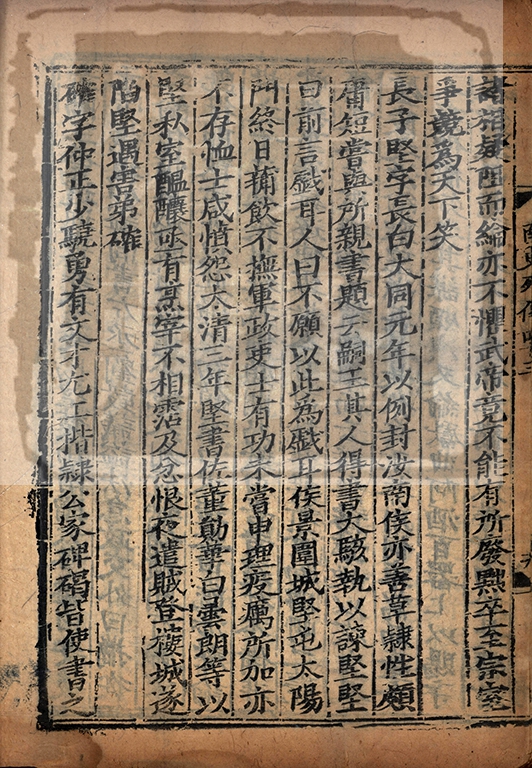 諸相疑阻而綸亦不懼武帝竟不能有所廢黜卒至宗室
爭競為天下笑
長子堅字長白大同元年以例封汝南侯亦善草隸性頗
庸短嘗與所親書題云嗣王其人得書大駭執以諫堅堅
曰前言戲耳人曰不願以此為戲耳侯景圍城堅屯太陽
門終日蒱飲不撫軍政吏士有功未嘗申理疫癘所加亦
不存恤士咸憤怨太清三年堅書佐董勛華白雲朗等以
堅私室醞釀亟有烹宰不相霑及忿恨夜遣賊登樓城遂
陷堅遇害弟確
確字仲正少驍勇有文才尤工楷隸公家碑碣皆使書之